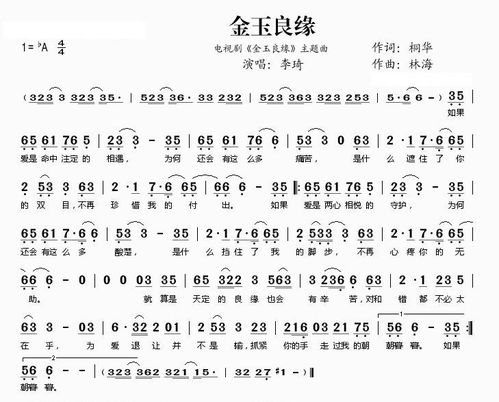 金玉良缘
1=♭A 4/4
电视剧《金玉良缘》主题曲
作词：桐华
演唱：李琦
作曲：林海
(323 323 323 35· | 523 36· 33 232 | 523 363 2321 6123 | 6·66 6 -) 35 |
如果
65 61 76 5 | 23 3 - 35 | 65 61 76 5 | 53 3 0 63 | 2·1 7·6 65 |
爱是 命中 注定的 相遇， 为何 还会 有这么多 痛苦， 是什 么 遮住了你
2 53 3 63 | 2·1 7·6 65 | 6 - - 35 |: 65 61 76 5 | 23 3 - 35 |
的 双 目，不再 珍惜我的 付 出。 如果 爱是 两心 相悦的 守护， 为何
65 61 76 5 | 53 3 - 63 | 2·1 7·6 65 | 2 53 3 63 | 2·1 7·6 65 |
还会 有这么多 酸楚， 是什 么 挡住了我 的 脚步， 不再 心疼你的无
66 6 - 0 | 0 0 03 35 | 53 32 23 36 | 0 3 2 36 | 7·6 67 6 53 |
助。 就 算是 天定 的 良 缘也会 有 辛苦，对和 错 都 不必太
2 3 3 - 03 | 6· 32 21 | 2·2 23 67 | 216 03 07 23 | 56 6 - 35 :|
在 乎， 为 爱 退让 并 不是 输，抓紧 你的手 走 过我的 朝朝暮暮。 如果
56 6 - 03 | 323 36 32 21 | 6 - - | 32 21 7 #1 - | 6 - - 0 ||
朝朝暮暮。